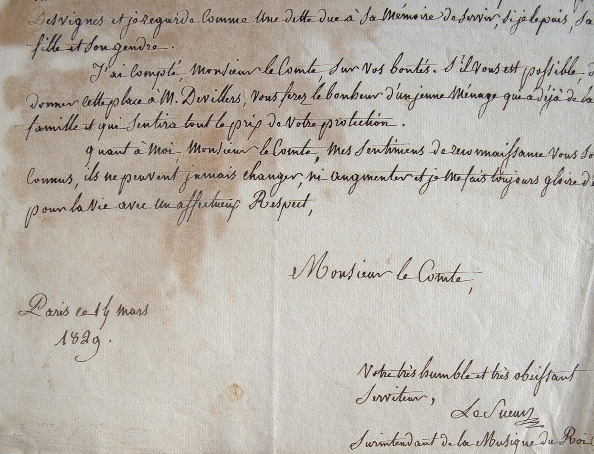 Desvignes et je regarde comme une dette due à Sa Memoire de Servir, Si je le puis, Sa
fille et Son gendre.
J'ai compté, Monsieur le Comte, Sur Vos bontés. S'il Vous est possible, d
donner cette place à M. Devillers, Vous ferez le bonheur d'un jeune Ménage qui a déjà de la
famille et qui Sentira tout le prix de Votre protection.
quant à Moi, Monsieur le Comte, Mes Sentimens de reconnaissance Vous So
Connus, ils ne peuvent jamais changer, ni augmenter et je Me fais toujours gloire d'ê
pour la Vie avec un affectueux Respect,
Monsieur le Comte,
Paris ce 14 mars
1829.
Votre très humble et très obeissant
Serviteur,
Le Sueur
Surintendant de la Musique du Roi